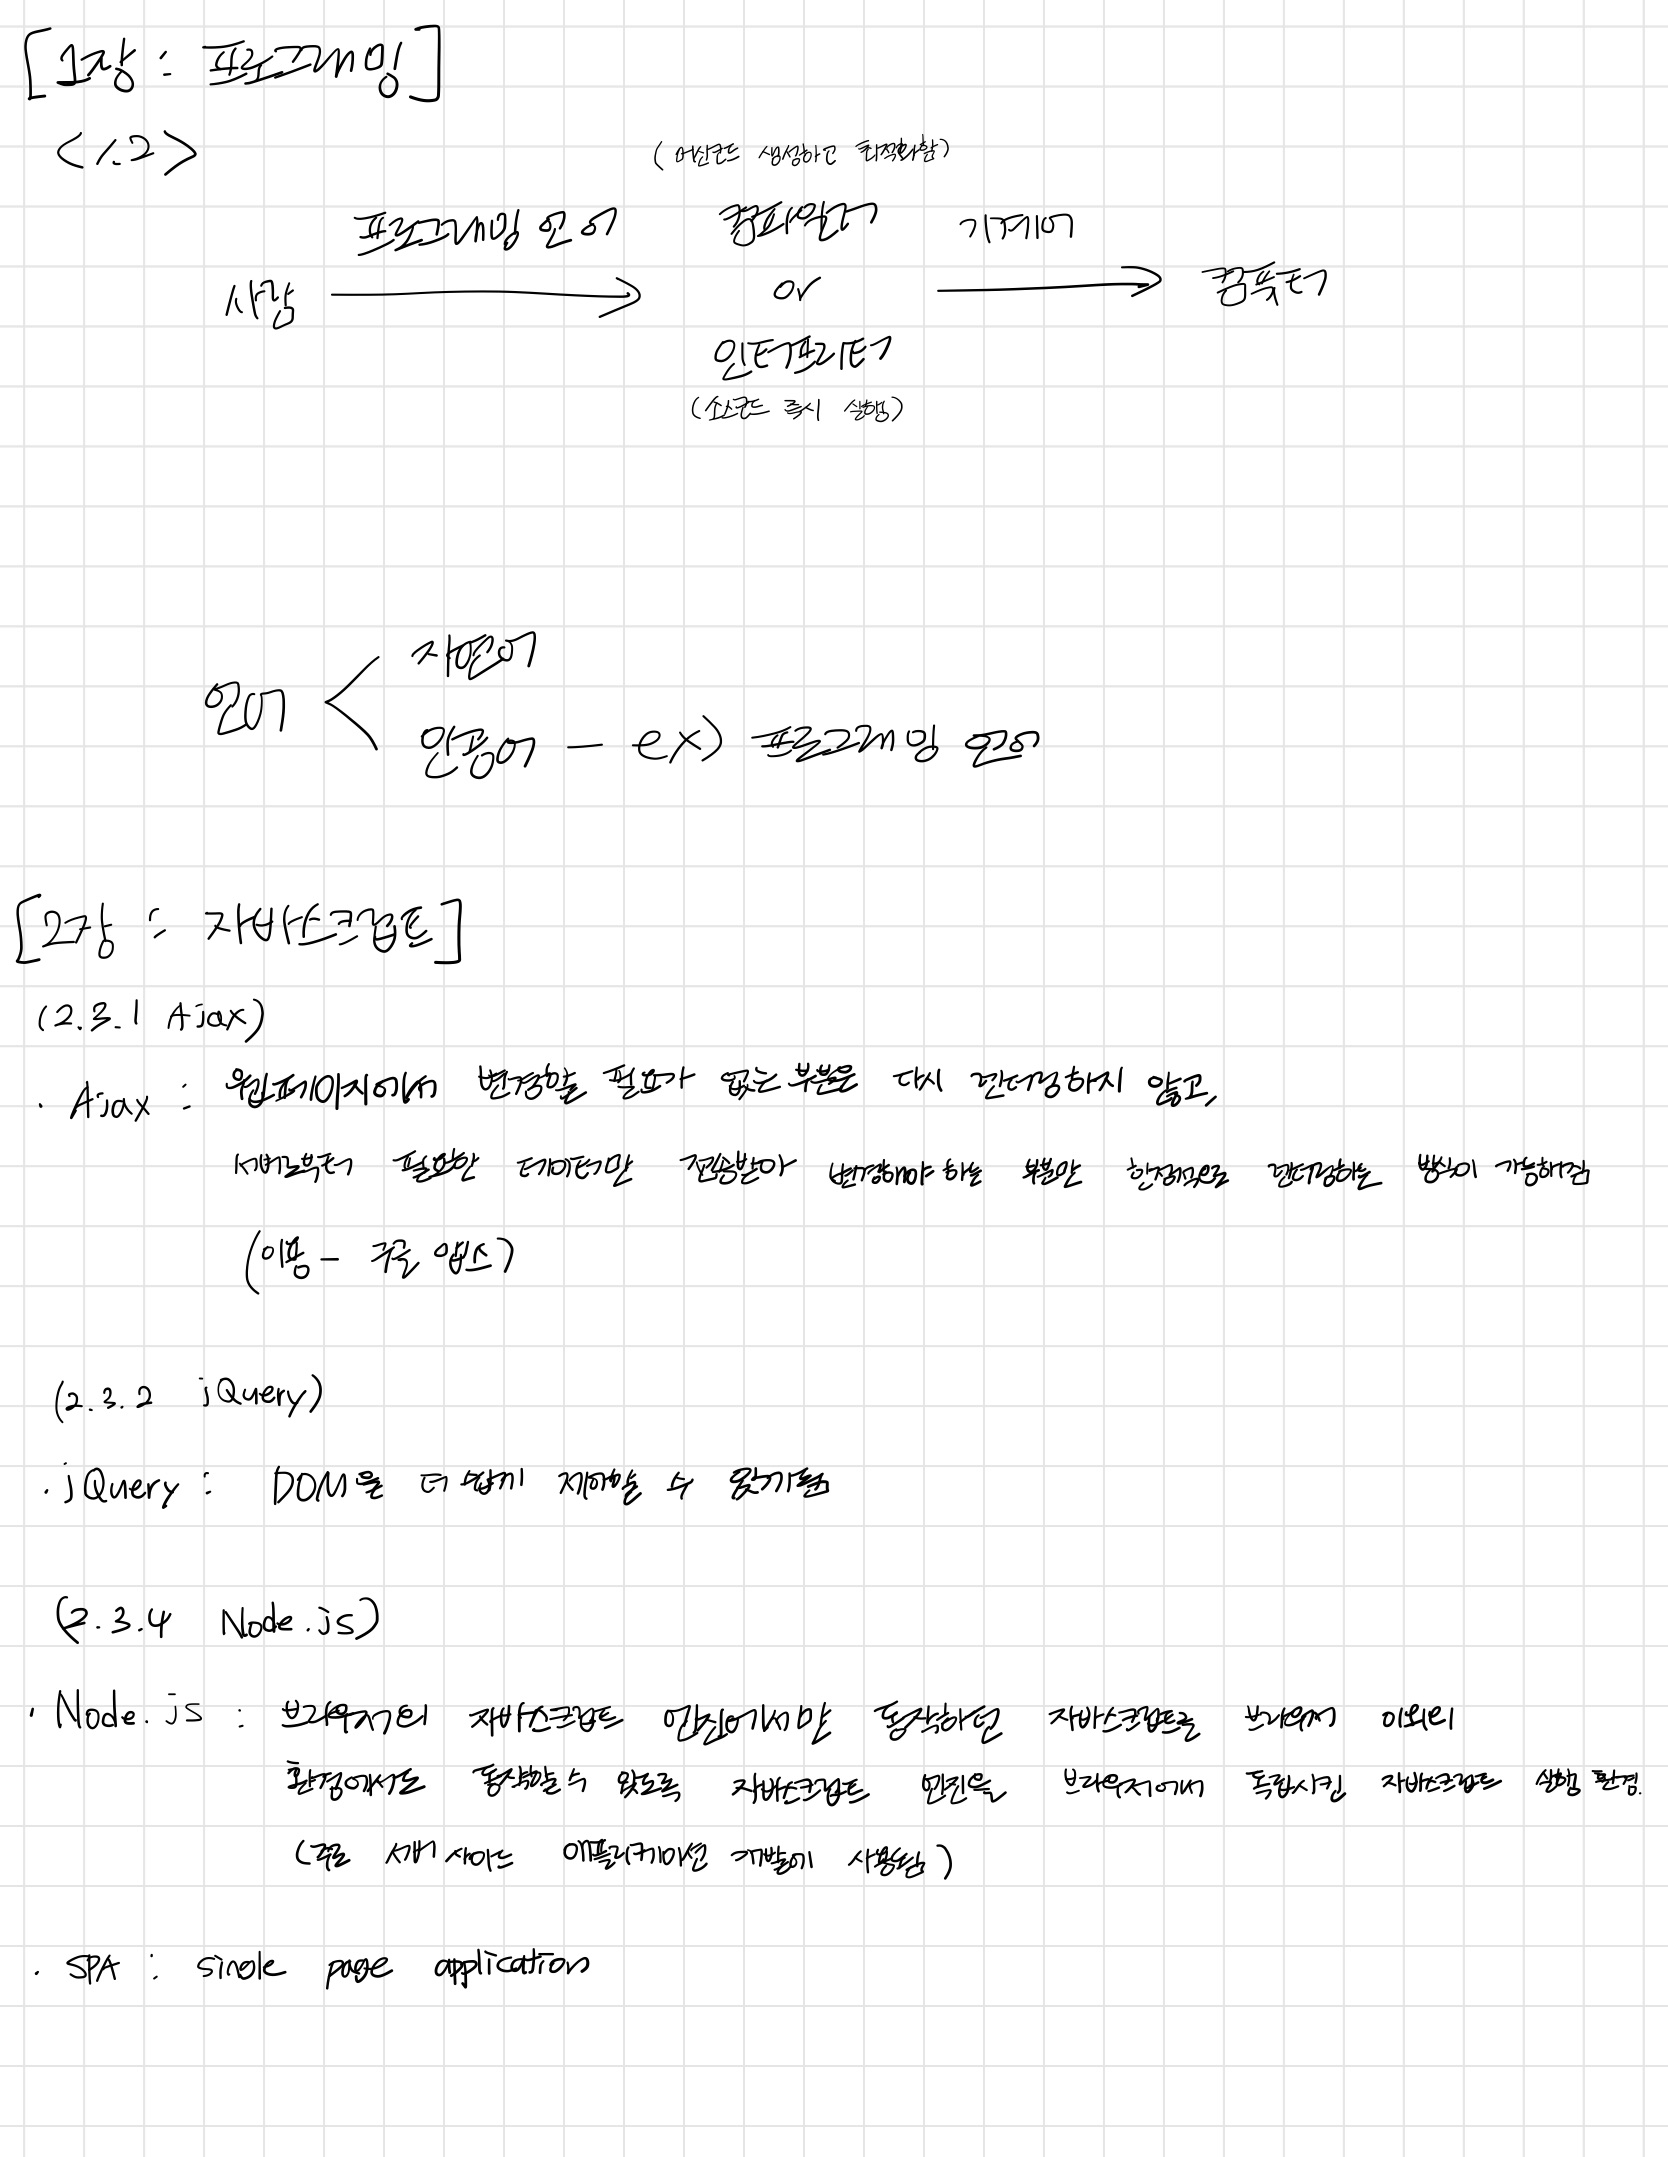 [1장 : 프로그래밍]
<1.2>
(머신코드 생성하고 최적화함)
프로그래밍 언어 컴파일러 기계어
사람 or 컴퓨터
인터프리터
(소스코드 즉시 실행)
자연어
언어
인공어 - ex) 프로그래밍 언어
[2장 : 자바스크립트]
(2.3.1 Ajax)
· Ajax : 웹페이지에서 변경할 필요가 없는 부분은 다시 렌더링하지 않고,
서버로부터 필요한 데이터만 전송받아 변경해야 하는 부분만 한정적으로 렌더링하는 방식이 가능해짐
(이용 - 구글 맵스)
(2.3.2 jQuery)
· jQuery : DOM을 더 쉽게 제어할 수 있게됨
(2.3.4 Node.js)
· Node.js : 브라우저의 자바스크립트 엔진에서만 동작하던 자바스크립트를 브라우저 이외의
환경에서도 동작할 수 있도록 자바스크립트 엔진을 브라우저에서 독립시킨 자바스크립트 실행 환경.
(주로 서버 사이드 애플리케이션 개발에 사용됨)
· SPA : single page application